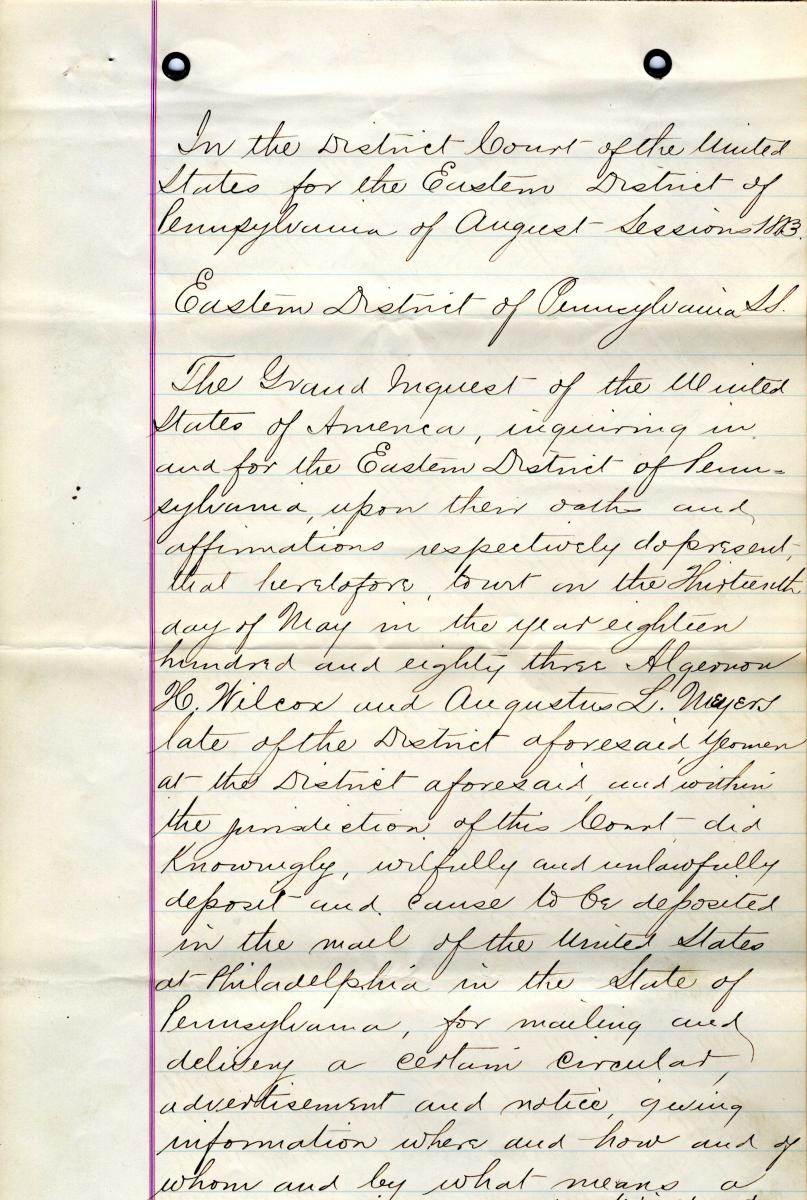 In the District Court of the United
States for the Eastern District of
Pennsylvania of August Sessions 1883.
Eastern District of Pennsylvania SS.
The Grand Inquest of the United
States of America, inquiring in
and for the Eastern District of Penn=
sylvania, upon their oaths and
affirmations respectively do present,
that heretofore, to wit on the Thirteenth
day of May in the year eighteen
hundred and eighty three Algernon
H. Wilcox and Augustus L. Meyers
late of the District aforesaid, Yeomen
at the District aforesaid, and within
the jurisdiction of this Court did
Knowingly, wilfully and unlawfully
deposit and cause to be deposited
in the mail of the United States
at Philadelphia in the State of
Pennsylvania, for mailing and
delivery a certain circular,
advertisement and notice, giving
information where and how and of
whom and by what means a